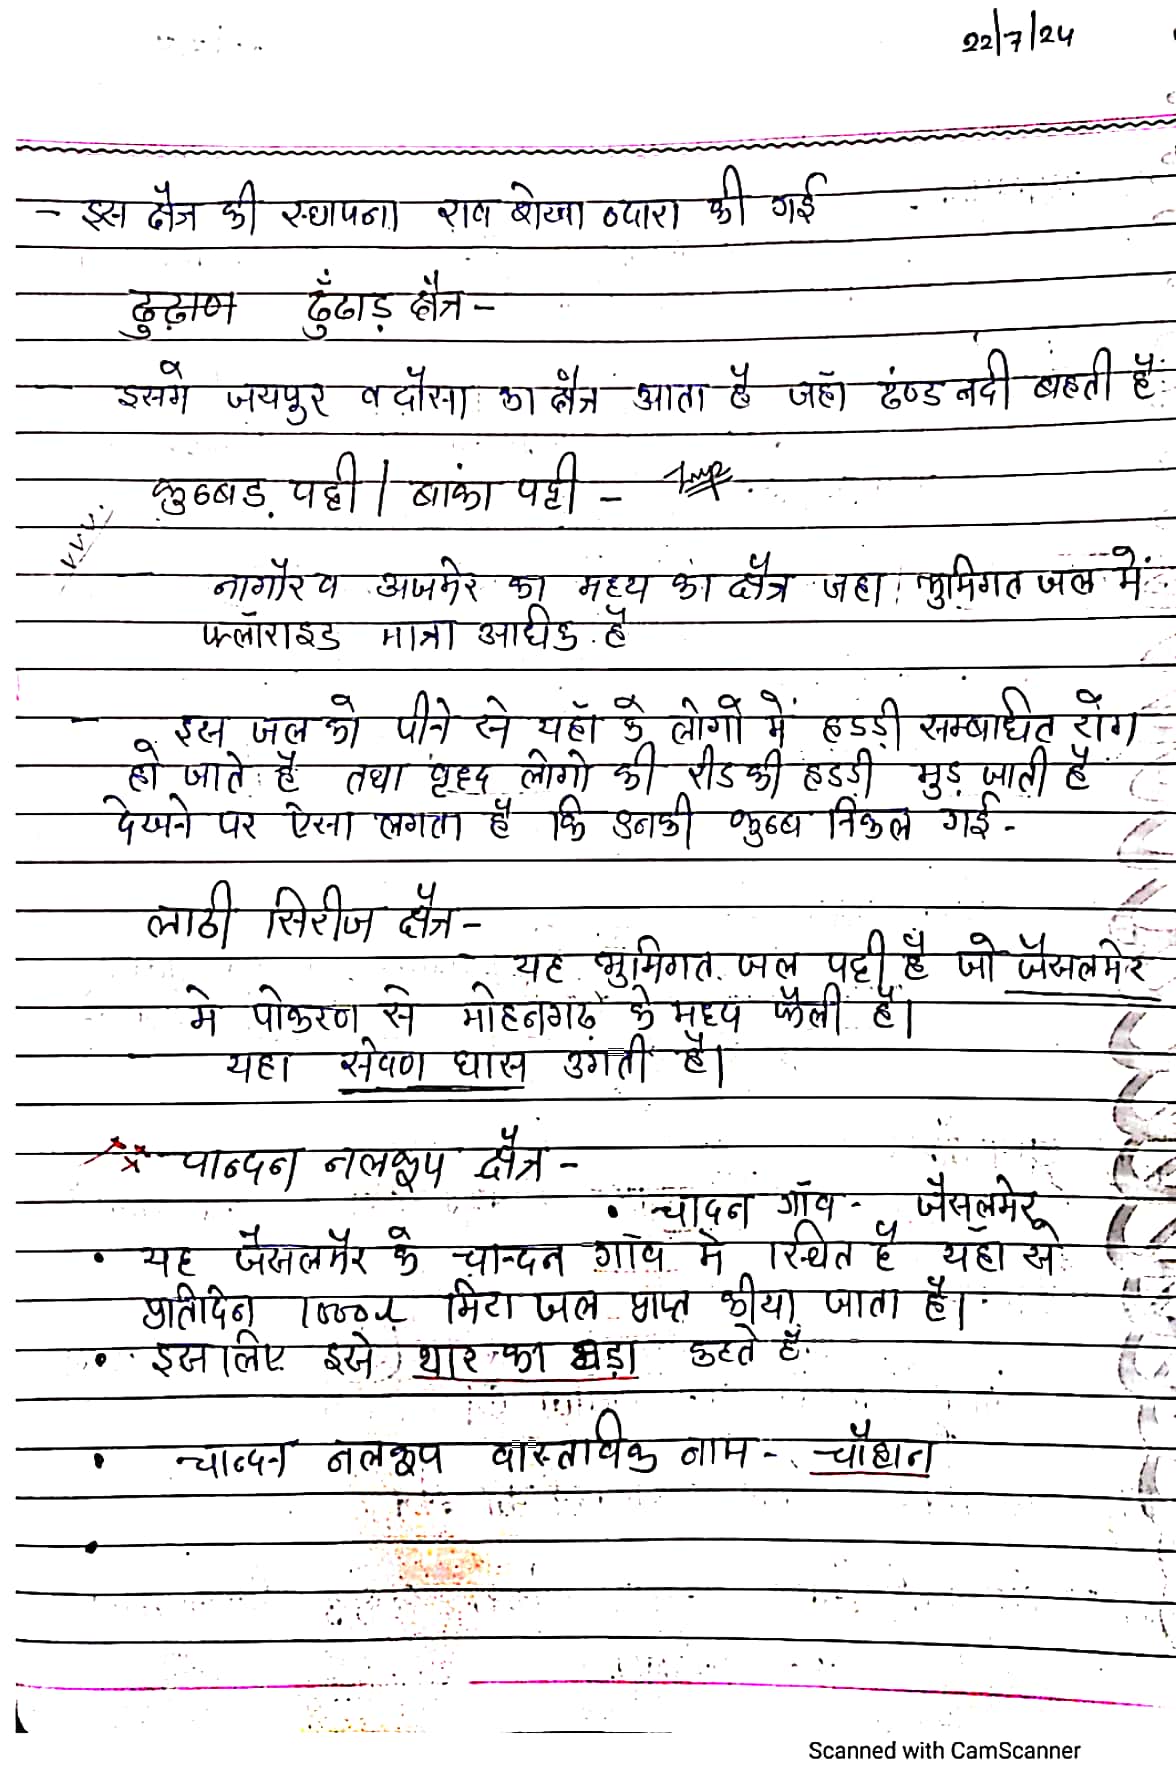 22/7/24
- इस क्षैत्र की स्थापना राव शेखा व्दारा की गई
ढुढ़ाण ढुँढाड़ क्षैत्र -
- इसमें जयपुर व दौसा का क्षैत्र आता है जहाँ ढंण्ड नदी बहती है
कुब्बड़ पट्टी / बांका पट्टी - Imp.
v.v.v.
- नागौर व अजमेर का मध्य का क्षैत्र जहा भुमिगत जल में
फ्लोराइड मात्रा आधीक है
- इस जल को पीने से यहाँ के लोगों में हडड़ी सम्बाधित रोंग
हो जाते है तथा वृद्द लोगो की रीड की हडड़ी मुड़ जाती है
देखने पर ऐसा लगता है कि उनकी कुब्ब निकल गई -
लाठी सिरीज क्षैत्र -
- यह भुमिगत जल पट्टी है जो जैसलमेर
मे पोकरण से मोहनगढ़ के मध्य फैली है।
- यहा सेवण घास उगती है।
चान्दन नलकूप क्षैत्र -
• चादन गाँव - जैसलमेर
• यह जैसलमैर के चान्दन गाँव मे स्थित है यहाँ से
प्रातिदिन मिटा जल प्राप्त कीया जाता है।
• इसलिए इसे थार का घड़ा कहते है
• चान्दन नलकूप वास्ताविक नाम - चौहान
•
Scanned with CamScanner